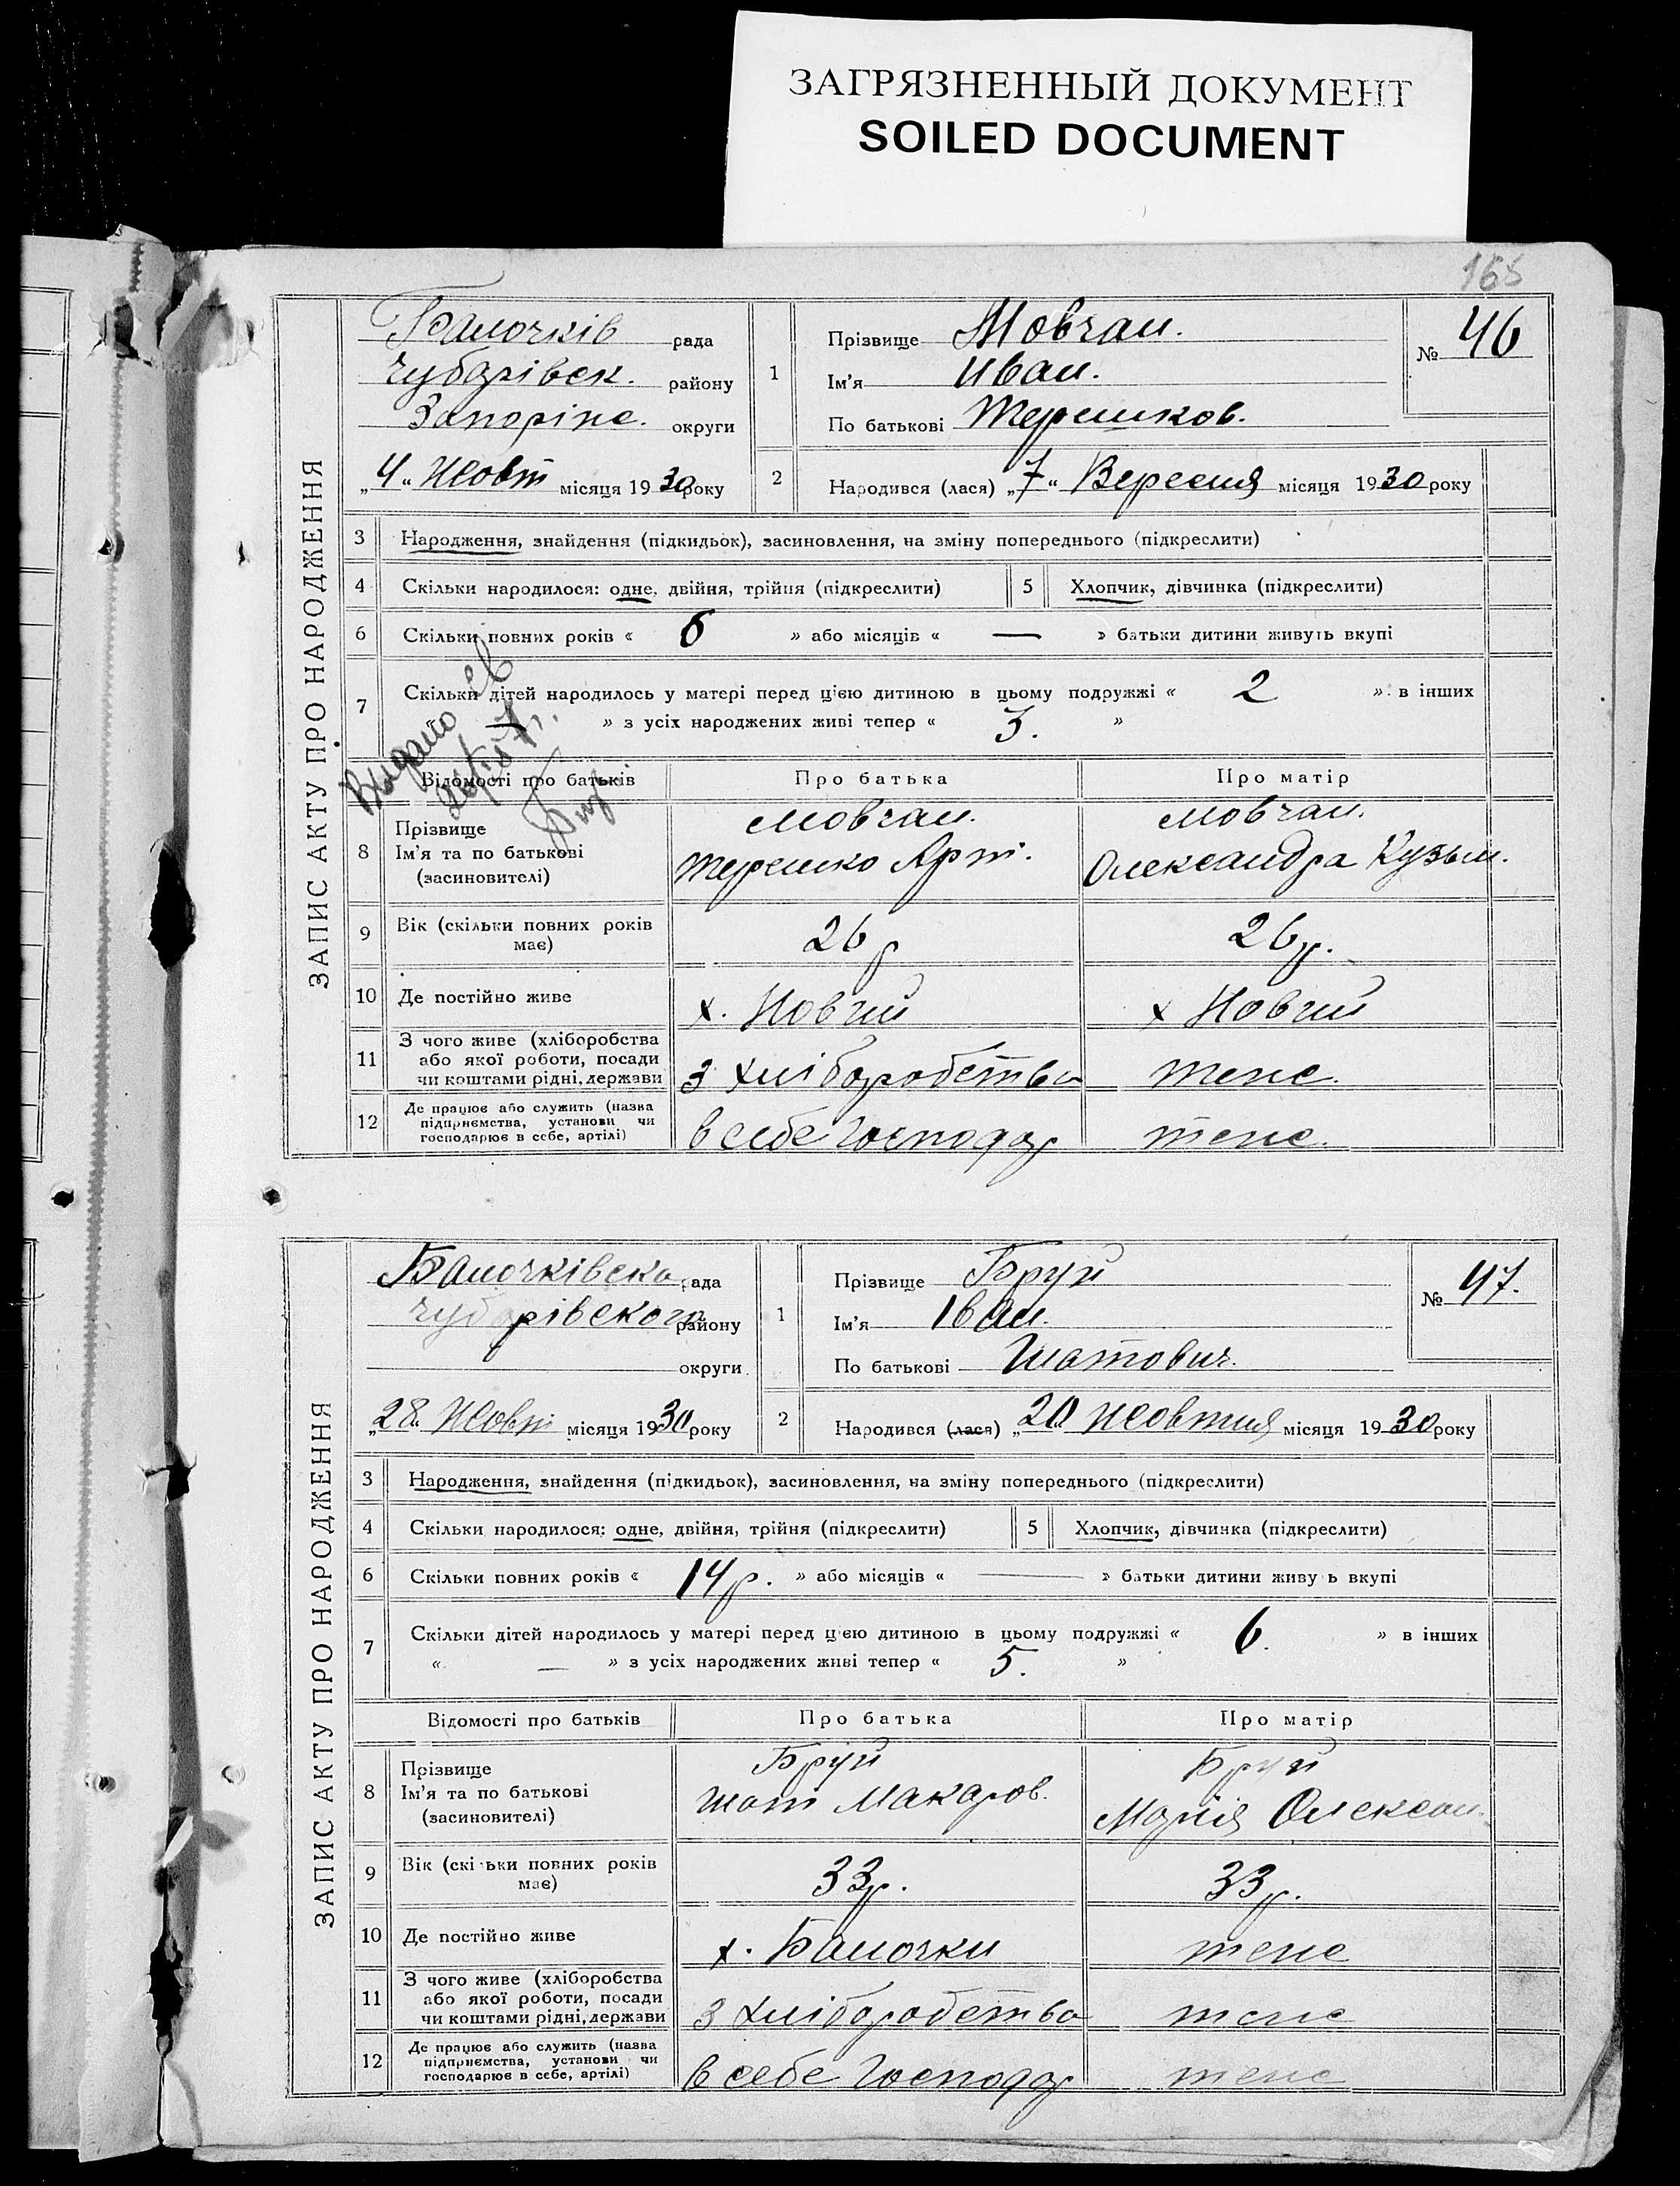 ЗАГРЯЗНЕННЫЙ ДОКУМЕНТ
SOILED DOCUMENT
ЗАПИС АКТУ ПРО НАРОДЖЕННЯ
Баночків рада
Чубарівск. району
Запоріж. округи
„4“ Жовт місяця 1930 року
1
Прізвище Мовчан.
Ім'я Иван.
По батькові Терешков.
№ 46
2 Народився (лася) „7“ Вересня місяця 1930 року
3 Народження, знайдення (підкидьок), засиновлення, на зміну попереднього (підкреслити)
4 Скільки народилося: одне, двійня, трійня (підкреслити) 5 Хлопчик, дівчинка (підкреслити)
6 Скільки повних років « 6 » або місяців « — » батьки дитини живуть вкупі
7 Скільки дітей народилось у матері перед цією дитиною в цьому подружжі « 2 » в інших
» з усіх народжених живі тепер « 3. »
Видано св
Відомості про батьків Про батька Про матір
8 Прізвище Мовчан. Мовчан.
Ім'я та по батькові Терешко Арт. Олександра Кузьм.
(засиновителі)
9 Вік (скільки повних років має) 26 р 26 р.
10 Де постійно живе х. х
11 З чого живе (хліборобства
або якої роботи, посади
чи коштами рідні, держави З хліборобства теже.
12 Де працює або служить (назва
підприємства, установи чи
господарює в себе, артілі) в себе господар теже.
ЗАПИС АКТУ ПРО НАРОДЖЕННЯ
Баночківска рада
Чубарівского району
округи
„28. Жовт місяця 1930 року
1
Прізвище Бруй
Ім'я Іван.
По батькові Шатович.
№ 47.
2 Народився (лася) „20 Жовтня місяця 1930 року
3 Народження, знайдення (підкидьок), засиновлення, на зміну попереднього (підкреслити)
4 Скільки народилося: одне, двійня, трійня (підкреслити) 5 Хлопчик, дівчинка (підкреслити)
6 Скільки повних років « 14 р. » або місяців « — » батьки дитини живу ь вкупі
7 Скільки дітей народилось у матері перед цією дитиною в цьому подружжі « 6. » в інших
« — » з усіх народжених живі тепер « 5. »
Відомості про батьків Про батька Про матір
8 Прізвище Бруй Бруй
Ім'я та по батькові Шат Макаров. Марія Олексан.
(засиновителі)
9 Вік (скільки повних років має) 33 р. 33 р.
10 Де постійно живе х. Баночки теже
11 З чого живе (хліборобства
або якої роботи, посади
чи коштами рідні, держави З хліборобства теже
12 Де працює або служить (назва
підприємства, установи чи
господарює в себе, артілі) в себе господар теже